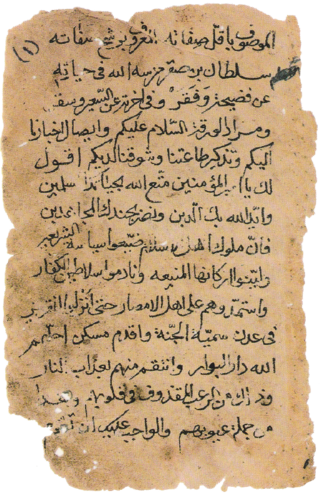 الموصوف باقل صفاته المعروف برشح صفاته (١)
سلطان بن صقر حرسه الله في حياته
عن فضيحة وفقر وفي اخرته عن السعير وسقر
ومراد الورقة السلام عليكم وايصال اخبارنا
اليكم وتذكر طاعتنا وشوقنا لديكم اقول
لك يا امير المؤمنين متع الله بحياتك المسلمين
وايد الله بك الدين ونصر بجندك المجاهدين
فان ملوك اهل الاسلام ضيعوا سياسة الشريعة
وابتنوا اركانها المنيعه ونادموا سلاطين الكفار
واستمدوهم على اهل الامصار حتى انزلوا
في عدن سمية الجنة واقدم مسكن
الله دار البوار وانتقم منهم بعذاب النار
وذلك من الرعب المقذوف في قلوبهم وهذا
من جملة عيوبهم والواجب عليك ان